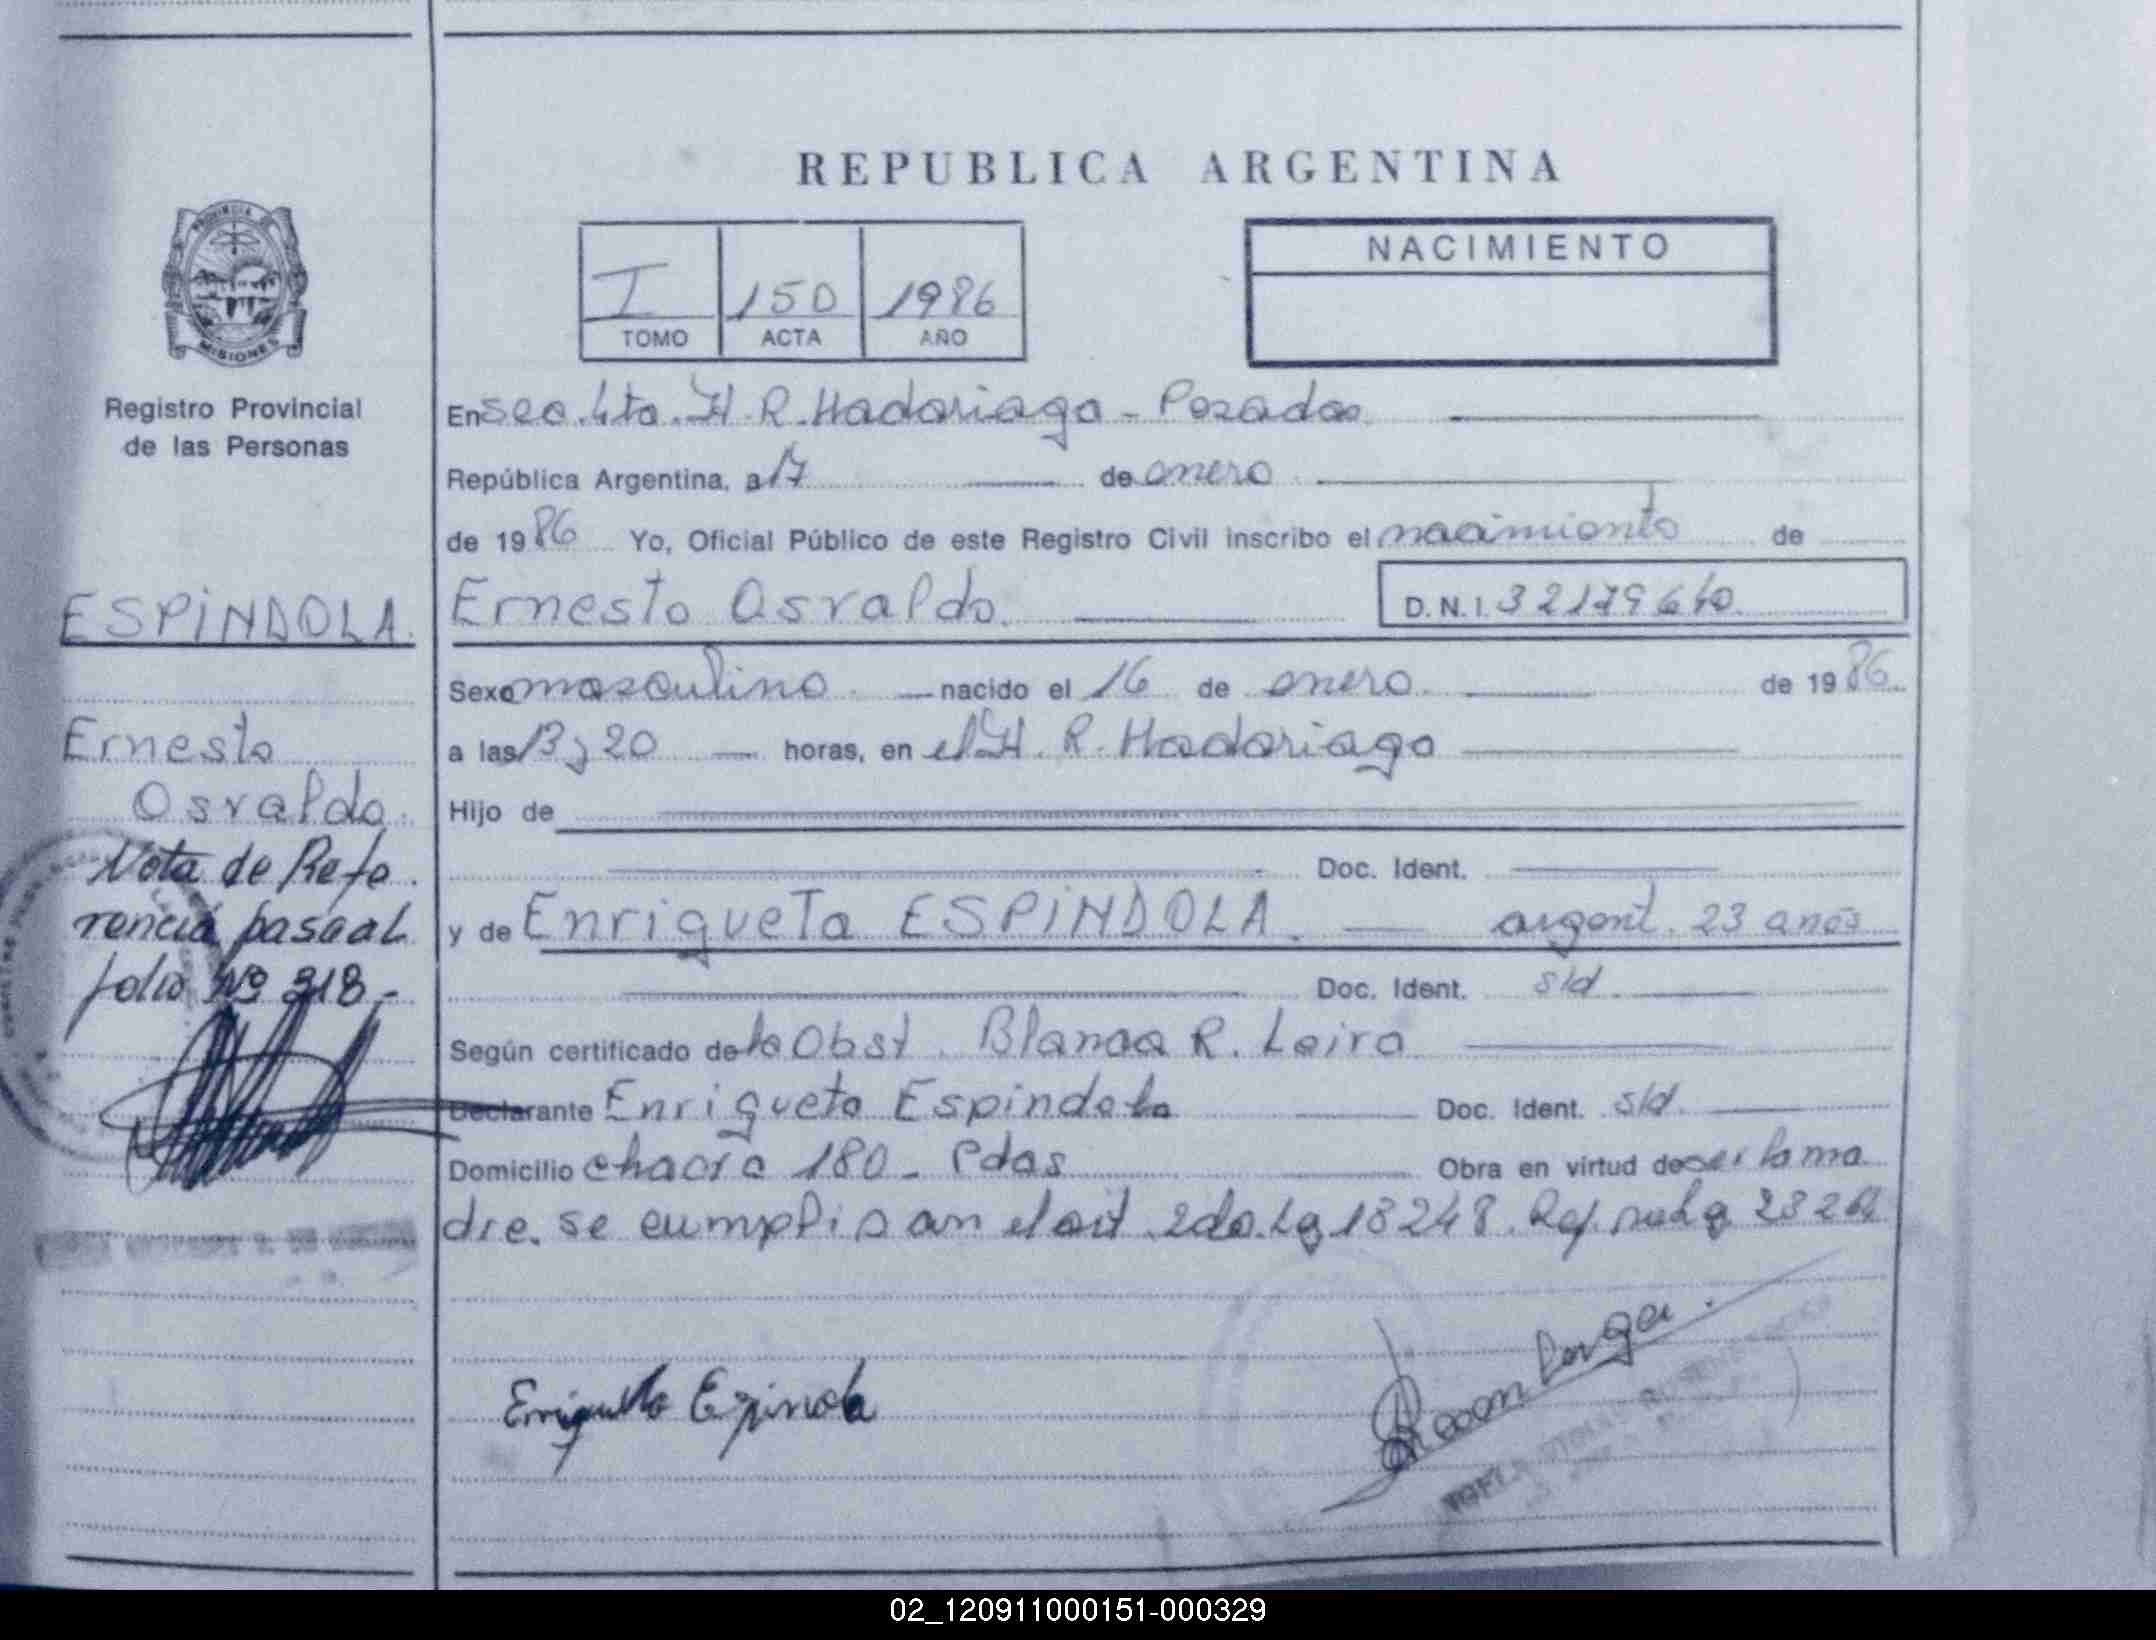 REPUBLICA ARGENTINA
PROVINCIA DE
MISIONES
Registro Provincial
de las Personas
I 150 1986
TOMO ACTA AÑO
NACIMIENTO
En Sec. 4ta. H. R. Madariaga - Posadas
República Argentina, a 17 de enero
de 1986 Yo, Oficial Público de este Registro Civil inscribo el nacimiento de
ESPINDOLA.
Ernesto Osvaldo.
D.N.I. 32179640
Sexo masculino. nacido el 16 de enero. de 1986.
Ernesto
Osvaldo.
a las 13 y 20 horas, en el H. R. Madariaga
Hijo de
Doc. Ident.
Nota de Refe
rencia pasa al
folio Nº 318.-
y de Enriqueta ESPINDOLA. argent. 23 anos
Doc. Ident. s/d.
Según certificado de la Obst. Blanca R. Leira
Declarante Enriqueta Espindola Doc. Ident. s/d.
Domicilio chacra 180 - Pdas Obra en virtud de ser la ma
dre. se cumplio con el art. 2do. Lg 18248. Ref.
Enriqueta Epinola
02_120911000151-000329